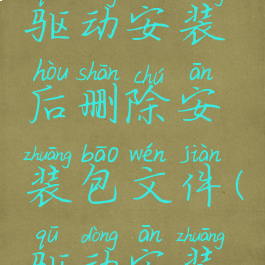 驱动安装
hòu shān chú ān
后删除安
zhuāng bāo wén jiàn
装包文件(
qū dòng ān zhuāng
驱动安装